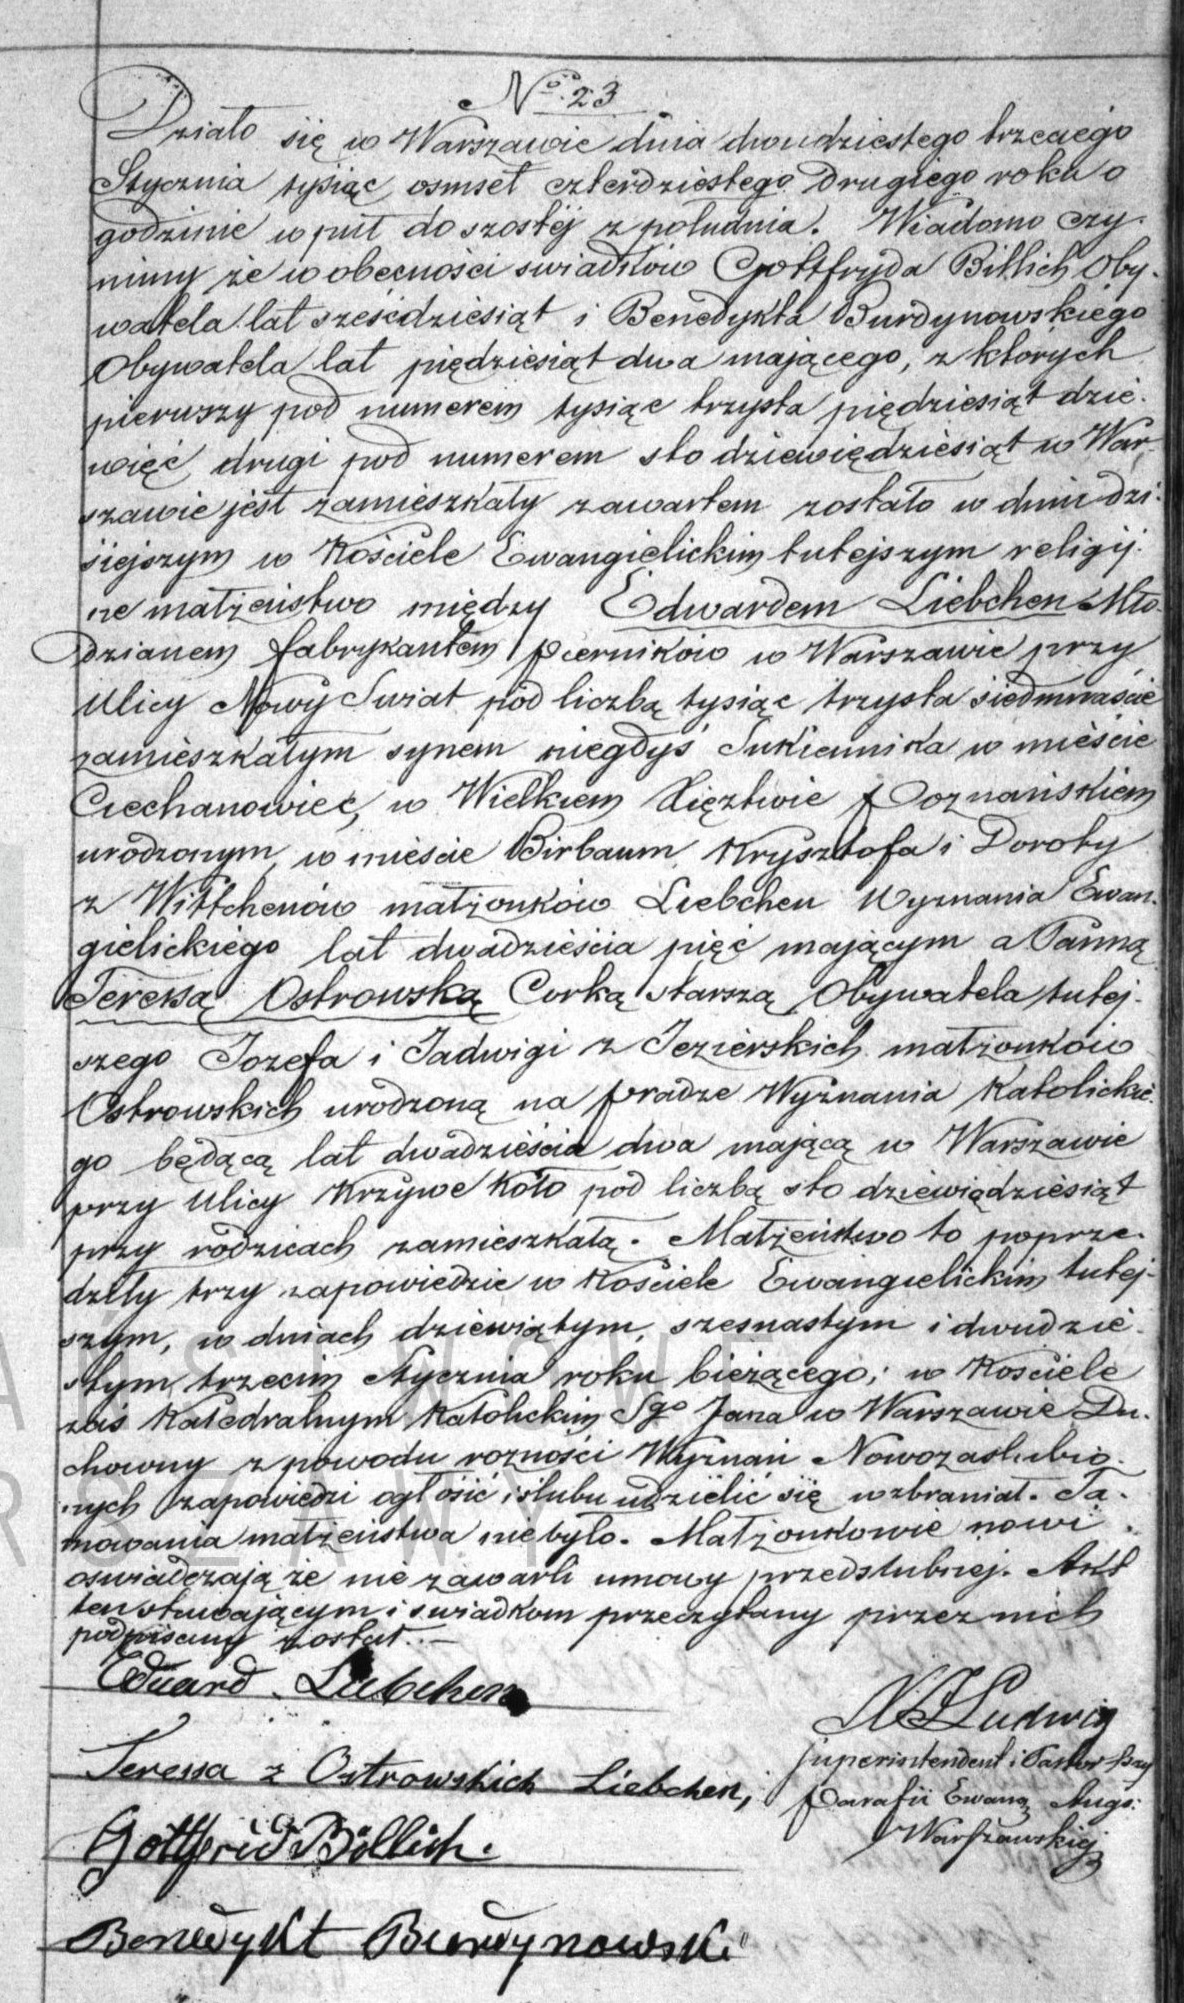 No 23
Działo się w Warszawie dnia dwudziestego trzeciego
Stycznia tysiąc osmset czterdziestego drugiego roku o
godzinie w puł do szostéj z południa. Wiadomo czy-
nimy że w obecności swiadków Gottfryda Billich Oby-
watela lat sześćdziesiąt i Benedykta Burdynowskiego
Obywatela lat piędziesiąt dwa mającego, z których
pierwszy pod numerem tysiąc trzysta piędziesiąt dzie-
więć, drugi pod numerem sto dziewiędziesiąt w War-
szawie jest zamieszkały zawartem zostało w dniu dzi-
siejszym w Kościele Ewangielickim tutejszym religij-
ne małżeństwo między Edwardem Liebchen Mło-
dzianem fabrykantem pierników w Warszawie przy
Ulicy Nowy Swiat pod liczbą tysiąc trzysta siedmnaście
zamieszkałym synem niegdyś Sukiennika w mieście
Ciechanowiec, w Wielkiem Xięztwie Poznańskiem
urodzonym, w mieście Birbaum Krysztofa i Doroty
z Wittchenów małżonków Liebchen Wyznania Ewan-
gielickiego lat dwadzieścia pięć mającym a Panną
Teressą Ostrowską Corką starszą Obywatela tutej-
szego Jozefa i Jadwigi z Jezierskich małżonków
Ostrowskich urodzoną na pradze Wyznania Katolickie-
go będącą lat dwadzieścia dwa mającą w Warszawie
przy Ulicy Krzywe Koło pod liczbą sto dziewiądziesiąt
przy rodzicach zamieszkałą. Małżeństwo to poprze-
dziły trzy zapowiedzie w Kościele Ewangielickim tutej-
szym, w dniach dziewiątym, szesnastym i dwudzie-
stym trzecim Stycznia roku bieżącego; w Kościele
zaś Katedralnym Katolickim Sgo Jana w Warszawie Du-
chowny z powodu rozności Wyznań Nowozaslubio-
nych zapowiedzi ogłosić i slubu udzielić się wzbraniał. Ta-
mowania małżeństwa niebyło. Małżonkowie nowi
oswiadczają że nie zawarli umowy przedslubnej. Akt
ten stawającym i swiadkom przeczytany przez nich
podpisany został. —
Eduard Liebchen
Teressa z Ostrowskich Liebchen,
Gottfried Billich.
Benedykt Burdynowski
Ludwig
Superintendent i Pastor przy
Parafii Ewang. Augs:
Warszawskiej
PAŃSTWOWE
WARSZAWY